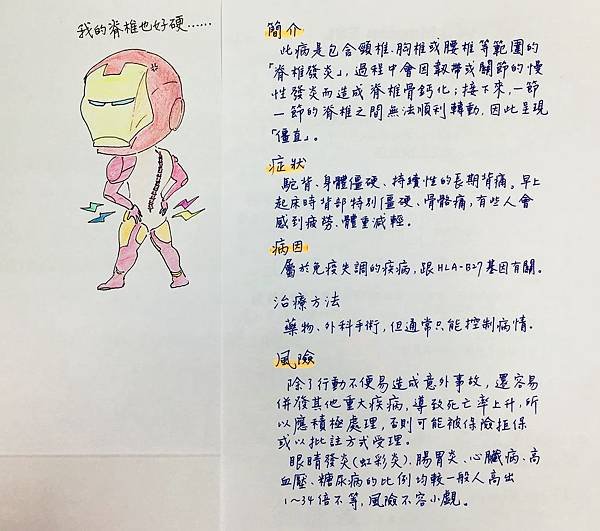 我的脊椎也好硬……
簡介
此病是包含頸椎、胸椎或腰椎等範圍的
「脊椎發炎」，過程中會因韌帶或關節的慢
性發炎而造成脊椎骨鈣化；接下來，一節
一節的脊椎之間無法順利轉動，因此呈現
「僵直」。
症狀
駝背、身體僵硬、持續性的長期背痛。早上
起床時背部特別僵硬、骨骼痛，有些人會
感到疲勞、體重減輕。
病因
屬於免疫失調的疾病，跟HLA-B27基因有關。
治療方法
藥物、外科手術，但通常只能控制病情。
風險
除了行動不便易造成意外事故，還容易
併發其他重大疾病，導致死亡率上升，所
以應積極處理，否則可能被保險拒保
或以批註方式受理。
眼睛發炎(虹彩炎)、腸胃炎、心臟病、高
血壓、糖尿病的比例均較一般人高出
1～34倍不等，風險不容小覷。